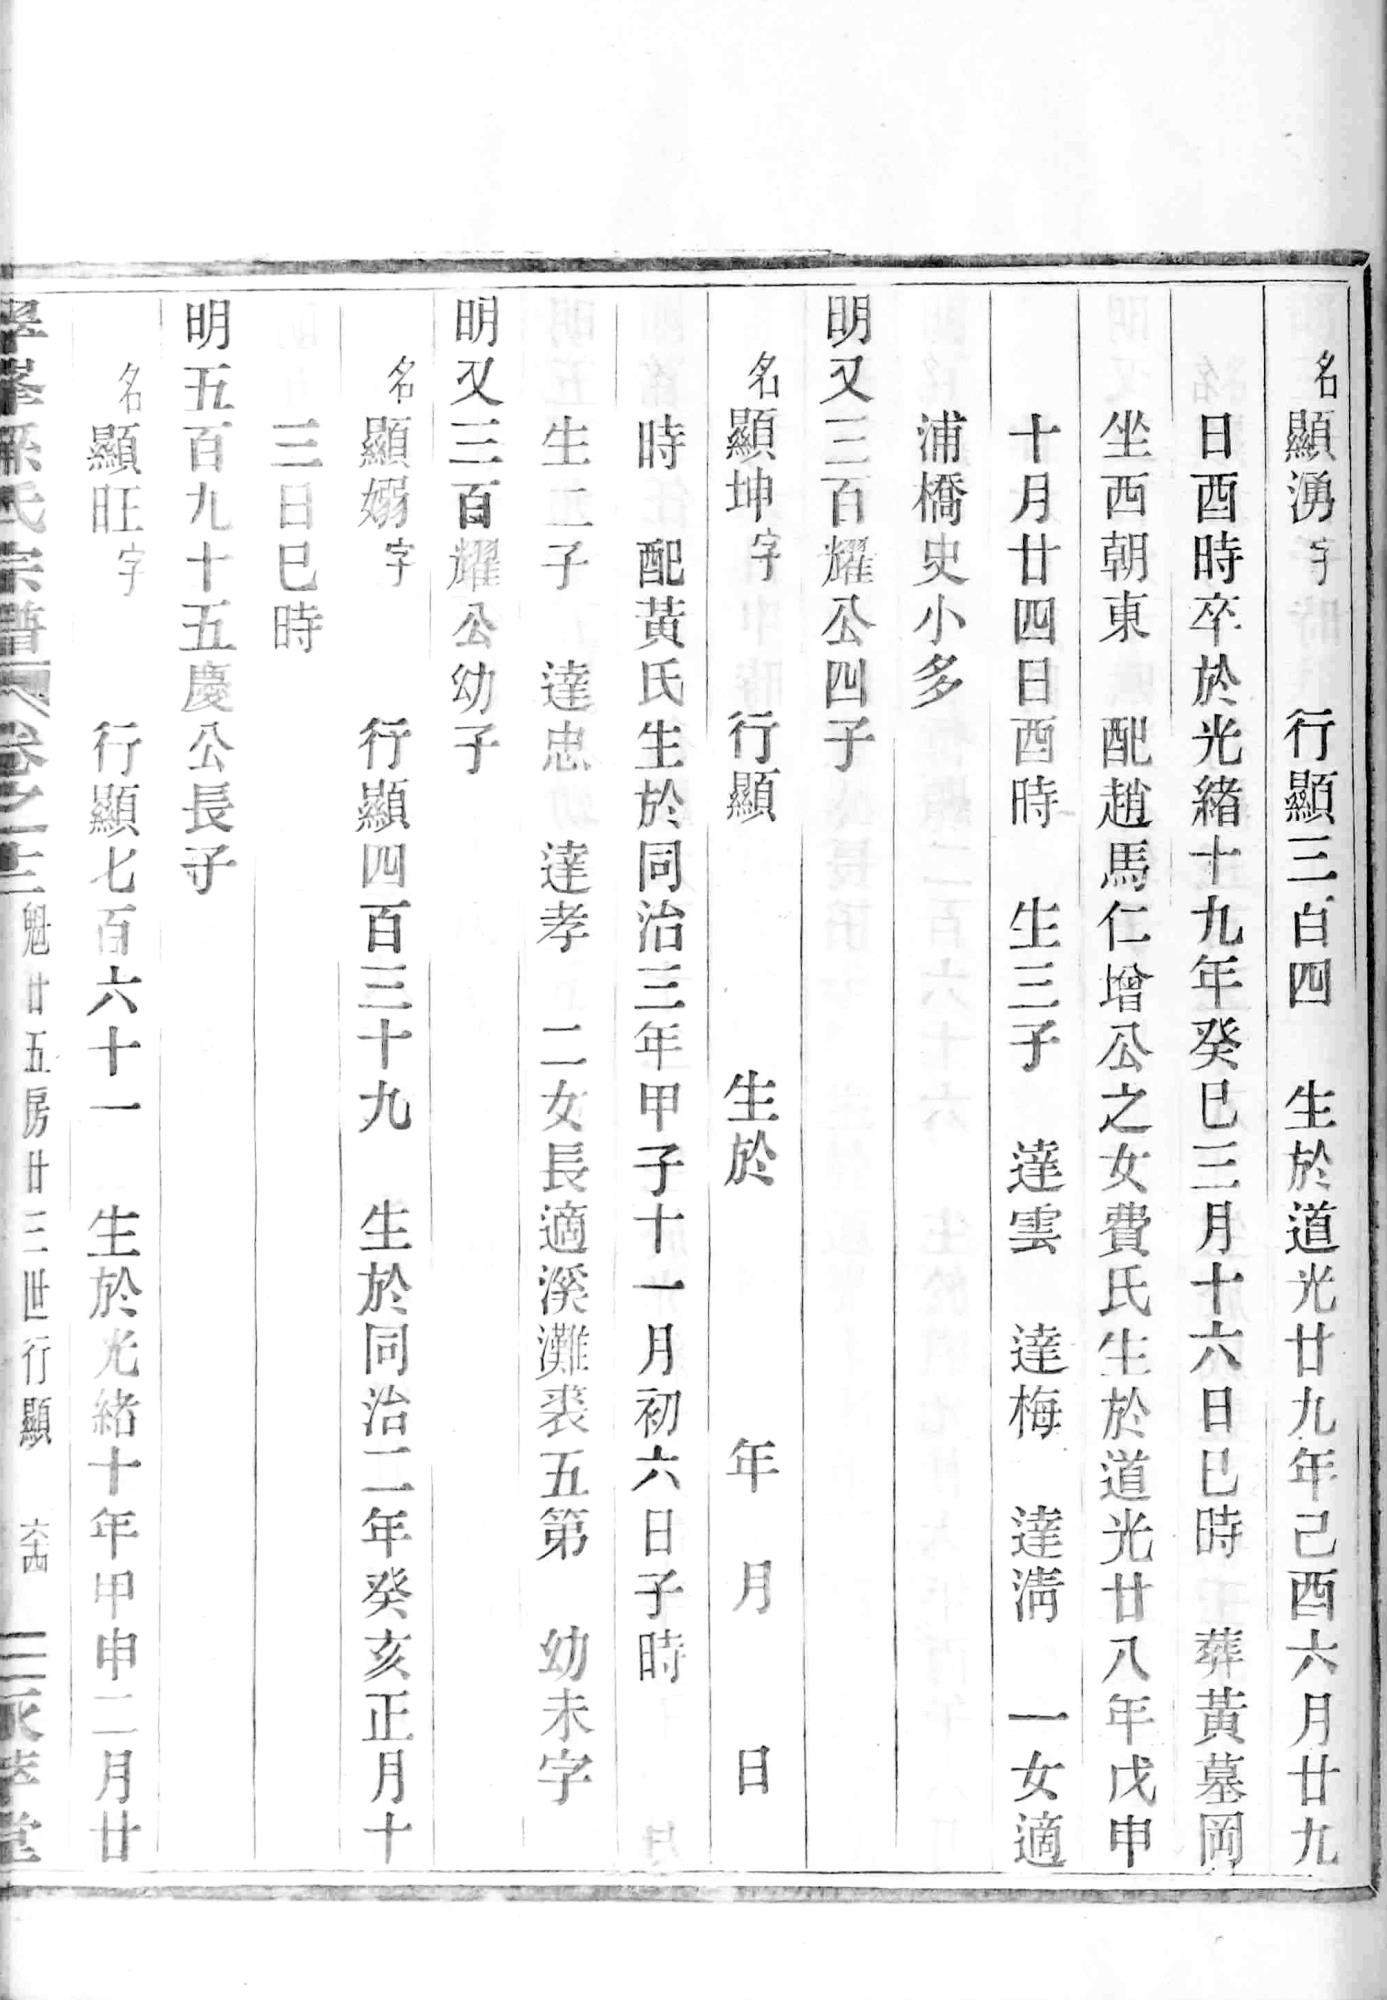 名顯湧字　行顯三百四　生於道光廿九年己酉六月廿九
日酉時卒於光緒十九年癸巳三月十六日巳時　葬黃墓岡
坐西朝東　配趙馬仁增公之女費氏生於道光廿八年戊申
十月廿四日酉時　生三子　達雲　達梅　達淸　一女適
浦橋史小多
明又三百耀公四子
名顯坤字　行顯　生於　年　月　日
時　配黃氏生於同治三年甲子十一月初六日子時
生二子　達忠　達孝　二女長適溪灘裘五第　幼未字
明又三百耀公幼子
名顯嫋字　行顯四百三十九　生於同治二年癸亥正月十
三日巳時
明五百九十五慶公長子
名顯旺字　行顯七百六十一　生於光緒十年甲申二月廿
孫氏宗譜　卷之十三　魁廿五房廿三世行顯　六四　堂